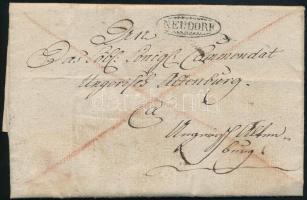 NEUDORF
Dem
Das Löbl. Königl. Commendat
Ungarisch Altenburg.
a
Ungrisch Alten=
burg